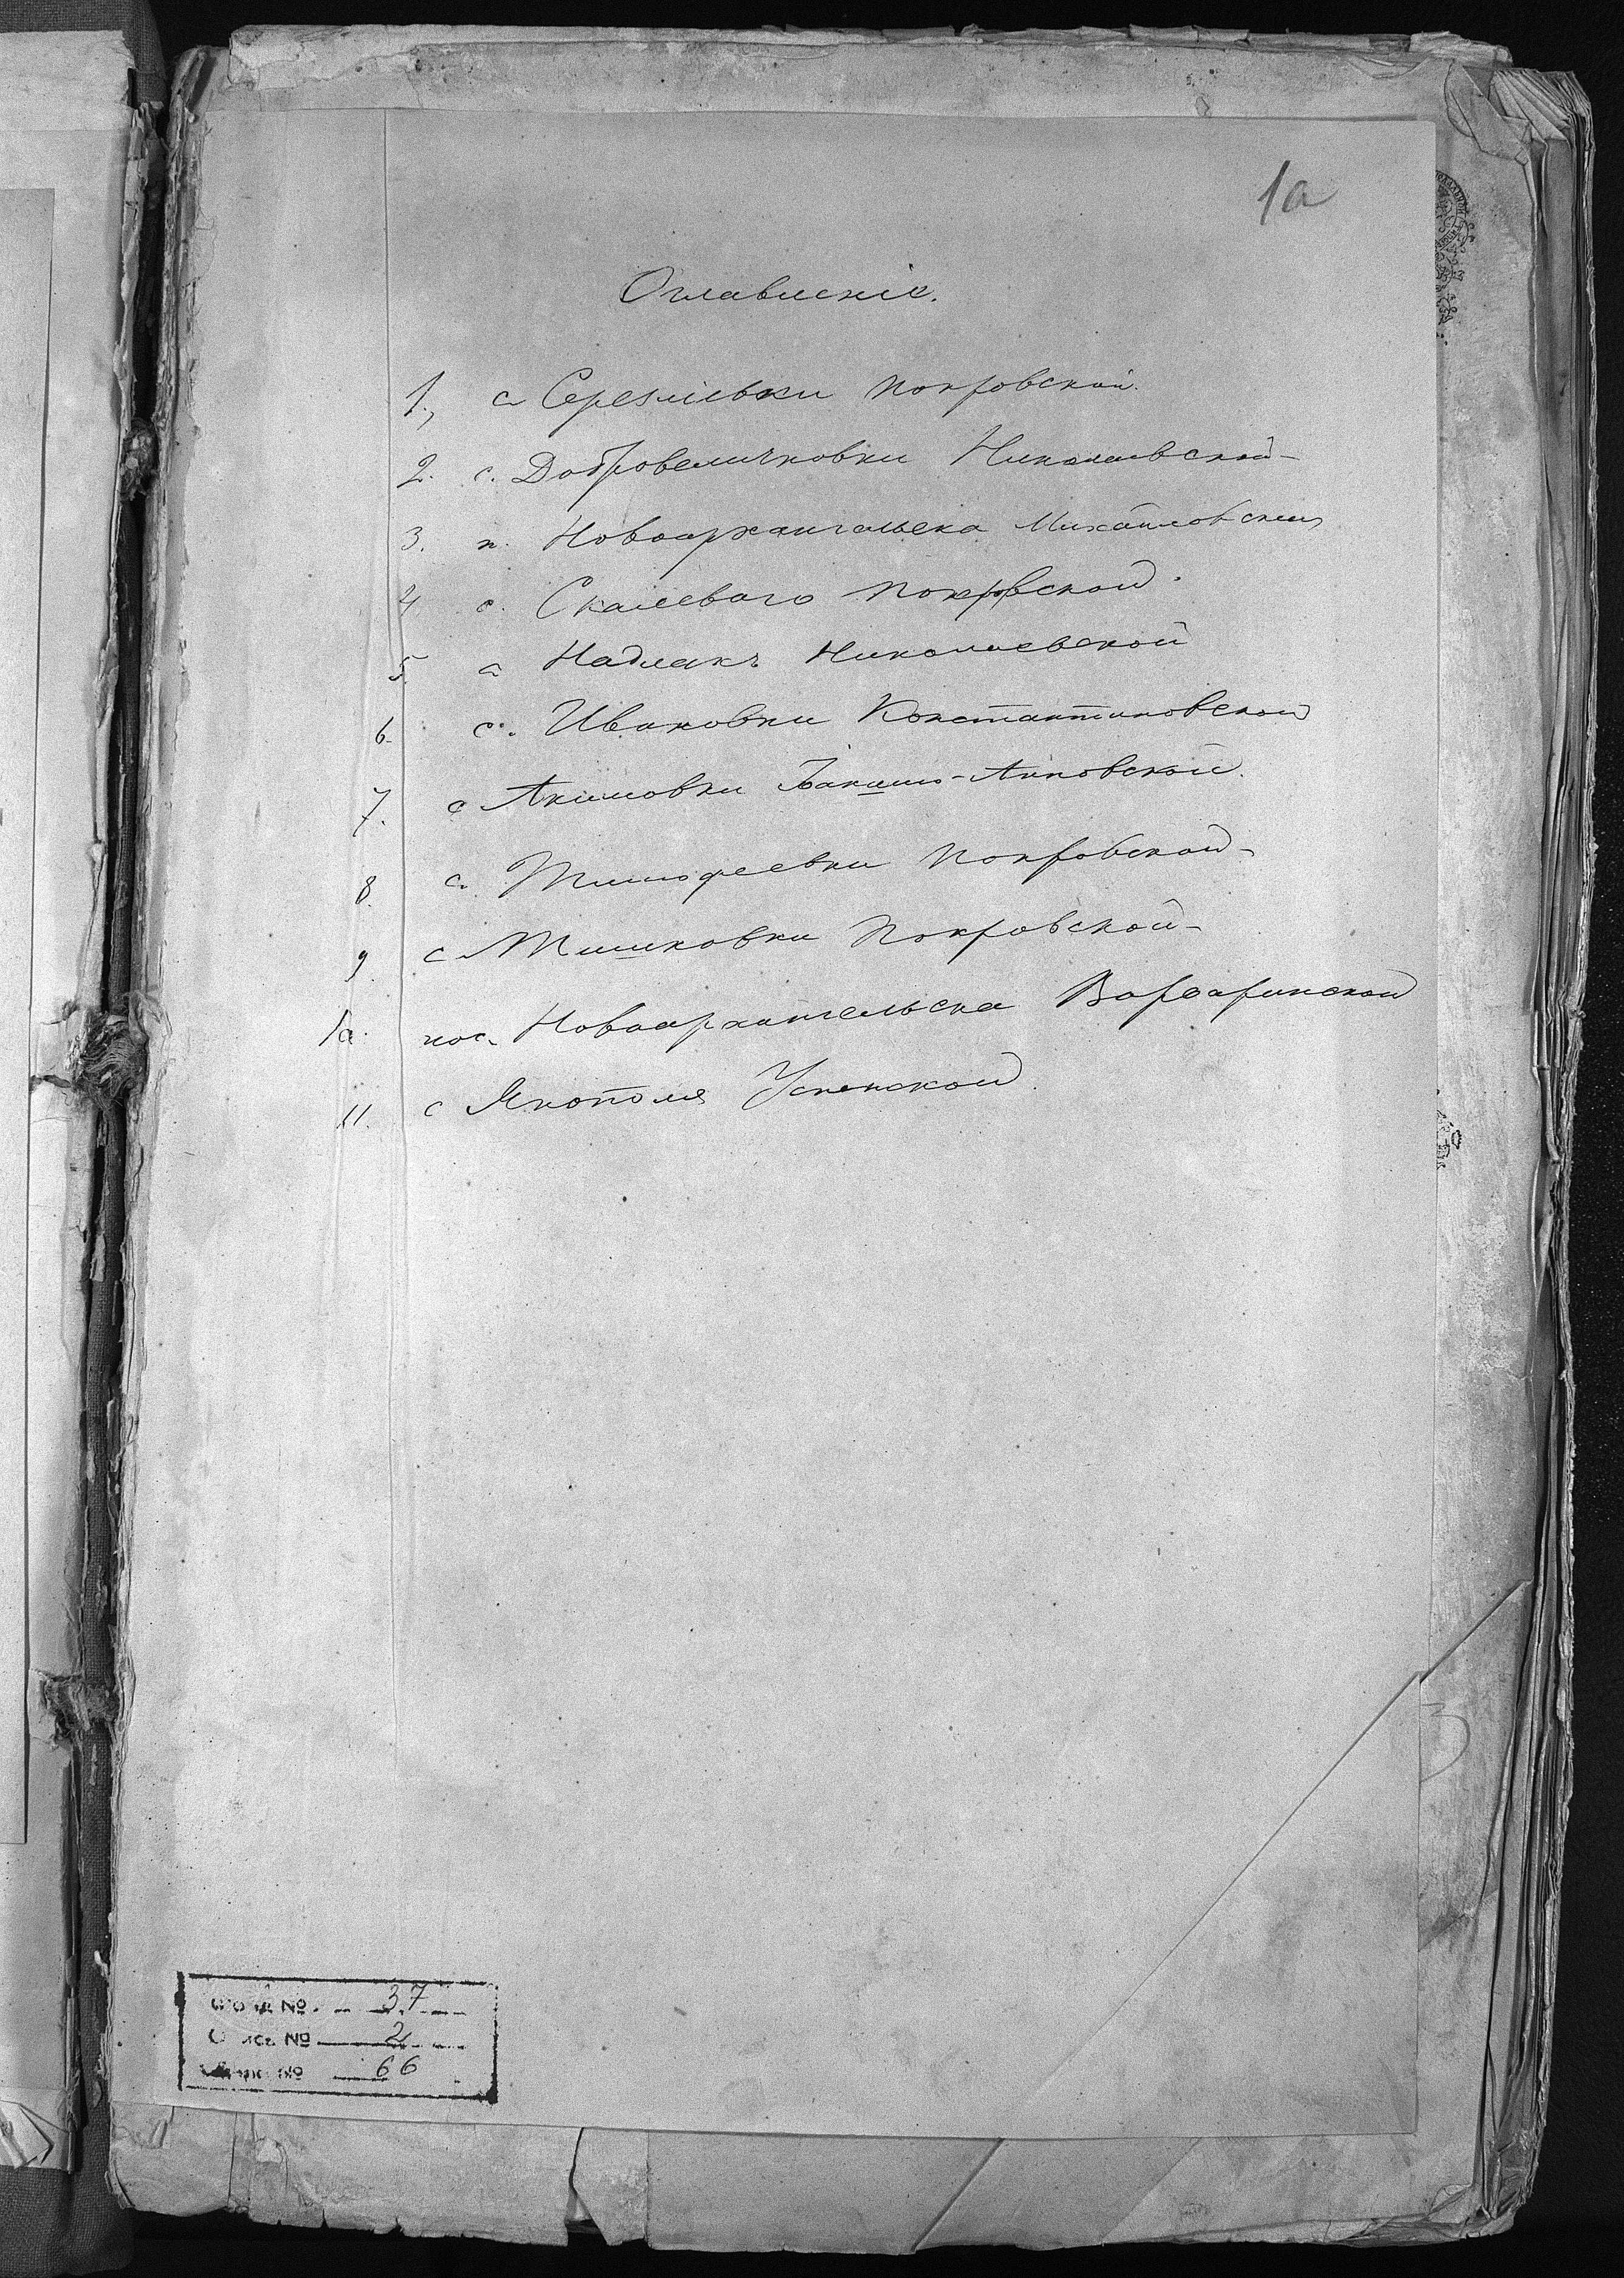 1а
Оглавленіе.
1., с Серезліевки Покровской.
2. с. Добровеличковки Николаевской
3. п. Новоархангельска Михайловской
4 с. Скалеваго Покровской.
5. с Надлакъ Николаевской
6. с. Ивановки Константиновской
7. с Акимовки Іакимо-Анновской.
8. с. Тимофеевки Покровской
9. с Тишковки Покровской
10. пос. Новоархангельска Варваринской
11. с Янополя Успенской.
Фонд № 37
Опись № 2
№ 66